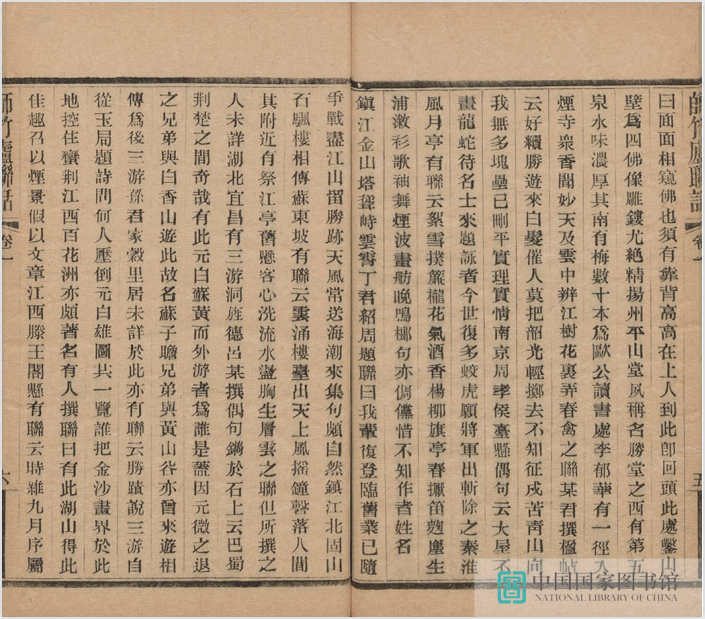 師竹廬聯話 卷一 五
曰面面相窺佛也須有靠背高高在上人到此卽回頭此處鑿山
壁爲四佛像雕鏤尤絕精揚州平山堂夙稱名勝堂之西有第五
泉水味濃厚其南有梅數十本爲歐公讀書處李郁華有一徑入
煙寺衆香聞妙天及雲中辨江樹花裏弄春禽之聯某君撰楹帖
云好續勝遊來白髮催人莫把韶光輕擲去不知征戍苦靑山向
我無多塊壘已剛平實理實情南京周孝侯臺懸偶句云大屋不
畫龍蛇待名士來題詠者今世復多蛟虎願將軍出斬除之秦淮
風月亭有聯云絮雪撲簾櫳花氣酒香楊柳旗亭春撅笛麴塵生
浦漵衫歌袖舞煙波畫舫晚鳴榔句亦倜儻惜不知作者姓名
鎭江金山塔聳峙雲霄丁君紹周題聯曰我輩復登臨舊業已隨
爭戰盡江山留勝跡天風常送海潮來集句頗自然鎭江北固山
石颿樓相傳蘇東坡有聯云雲涌樓臺出天上風搖鐘磬落人間
其附近有祭江亭舊懸客心洗流水盪胸生層雲之聯但所撰之
人未詳湖北宜昌有三游洞旌德呂某撰偶句鐫於石上云巴蜀
荆楚之間奇哉有此元白蘇黃而外游者爲誰是蓋因元微之退
之兄弟與白香山遊此故名蘇子瞻兄弟與黃山谷亦曾來遊相
傳爲後三游孫君家穀里居未詳於此亦有聯云勝蹟說三游自
從玉局題詩問何人壓倒元白雄圖共一覽誰把金沙畫界於此
地控住蠻荆江西百花洲亦頗著名有人撰聯曰有此湖山得此
佳趣召以煙景假以文章江西滕王閣懸有聯云時維九月序屬
師竹廬聯話 卷一 六
中国国家图书馆
NATIONAL LIBRARY OF CHINA